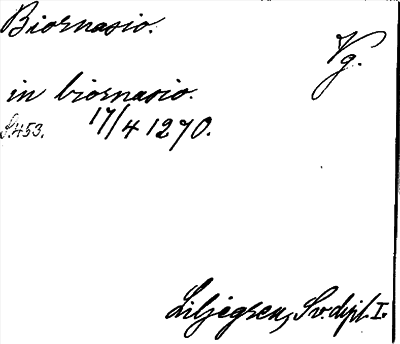 Biornasio.
Vg.
in biornasio.
S.453. 17/4 1270.
Liljegren, Sv. dipl. I.